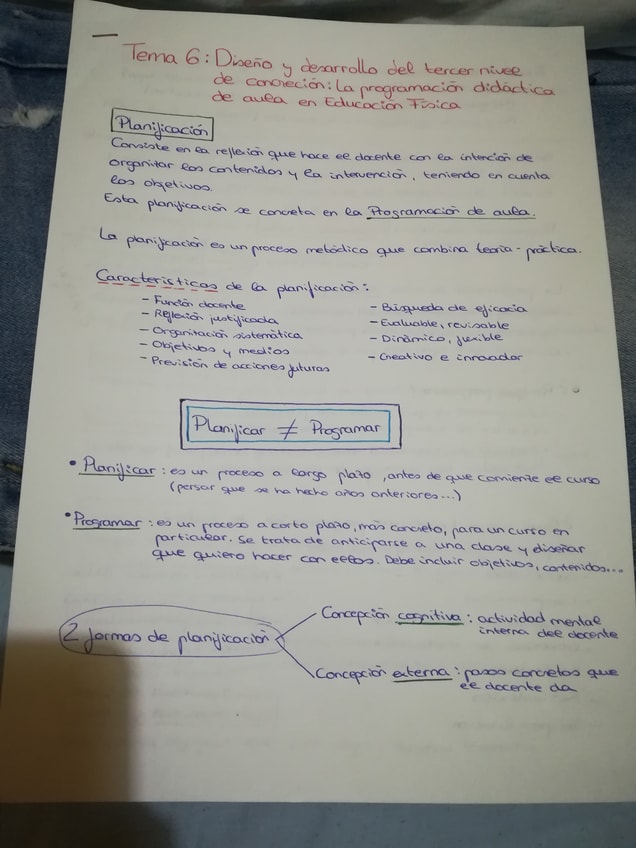 Tema 6: Diseño y desarrollo del tercer nivel
de concreción: La programación didáctica
de aula en Educación Física
Planificación
Consiste en la reflexión que hace el docente con la intención de
organizar los contenidos y la intervención, teniendo en cuenta
los objetivos.
Esta planificación se concreta en la Programación de aula.
La planificación es un proceso metódico que combina teoría-práctica.
Características de la planificación:
- Función docente
- Reflexión justificada
- Organización sistemática
- Objetivos y medios
- Previsión de acciones futuras
- Búsqueda de eficacia
- Evaluable, revisable
- Dinámico, flexible
- Creativo e innovador
Planificar ≠ Programar
• Planificar: es un proceso a largo plazo, antes de que comience el curso
(pensar que se ha hecho años anteriores...)
• Programar: es un proceso a corto plazo, más concreto, para un curso en
particular. Se trata de anticiparse a una clase y diseñar
que quiero hacer con ellos. Debe incluir objetivos, contenidos...
2 formas de planificación
Concepción cognitiva: actividad mental
interna del docente
Concepción externa: pasos concretos que
el docente da